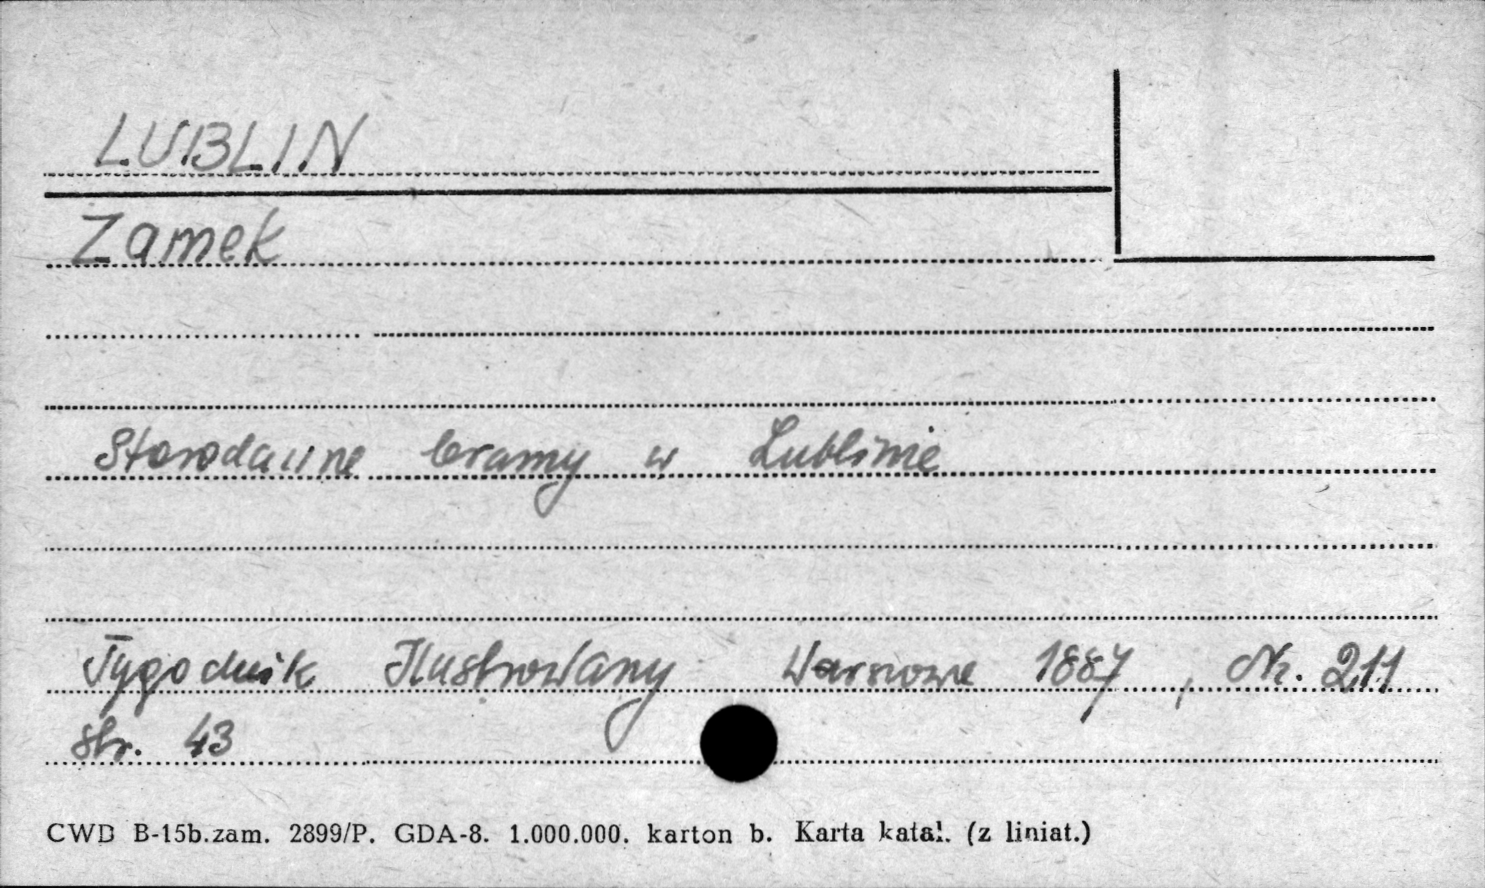 LUBLIN
Zamek
Starodawne bramy w Lublinie
Tygodnik Ilustrowany Warszawa 1887, Nr. 211
str. 43
CWD B-15b.zam. 2899/P. GDA-8. 1.000.000. karton b. Karta katal. (z liniat.)